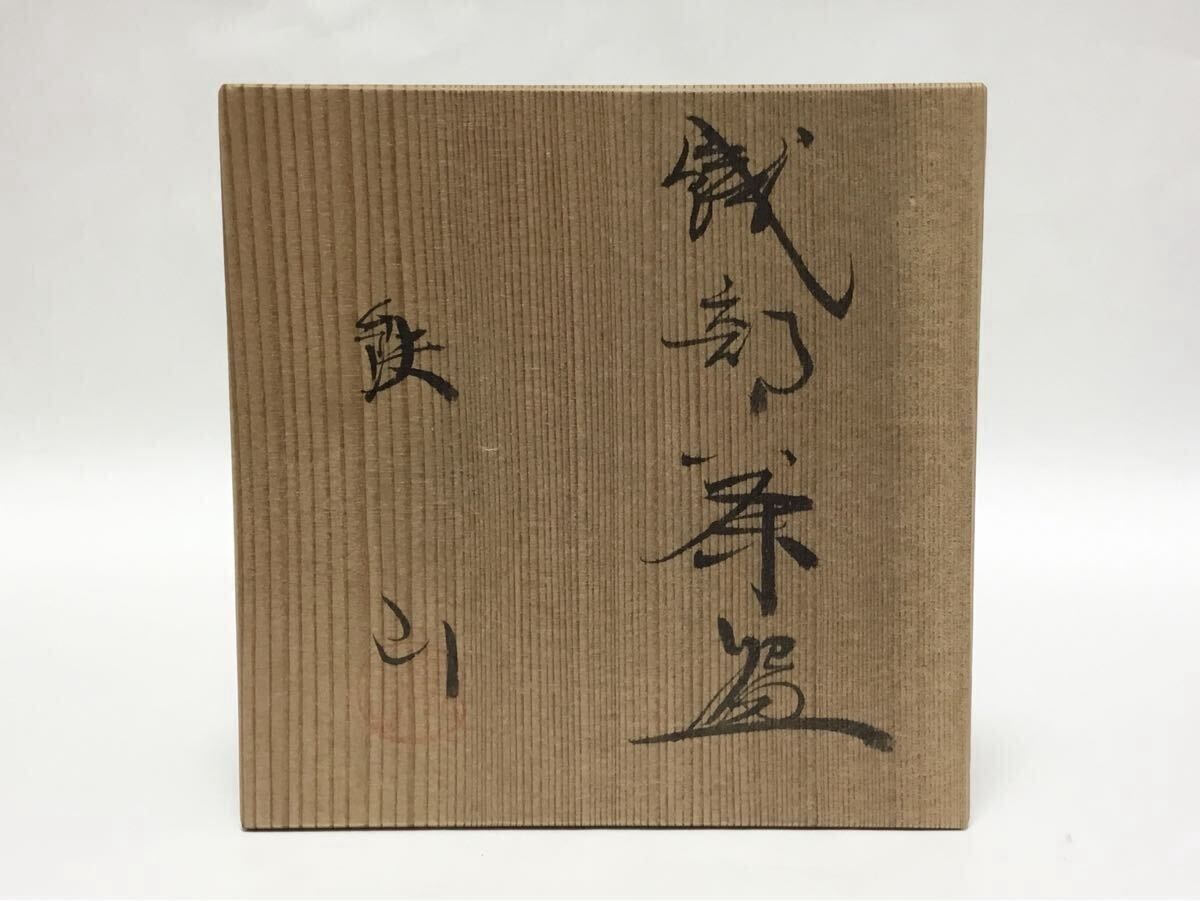 織部茶盌
鉄山